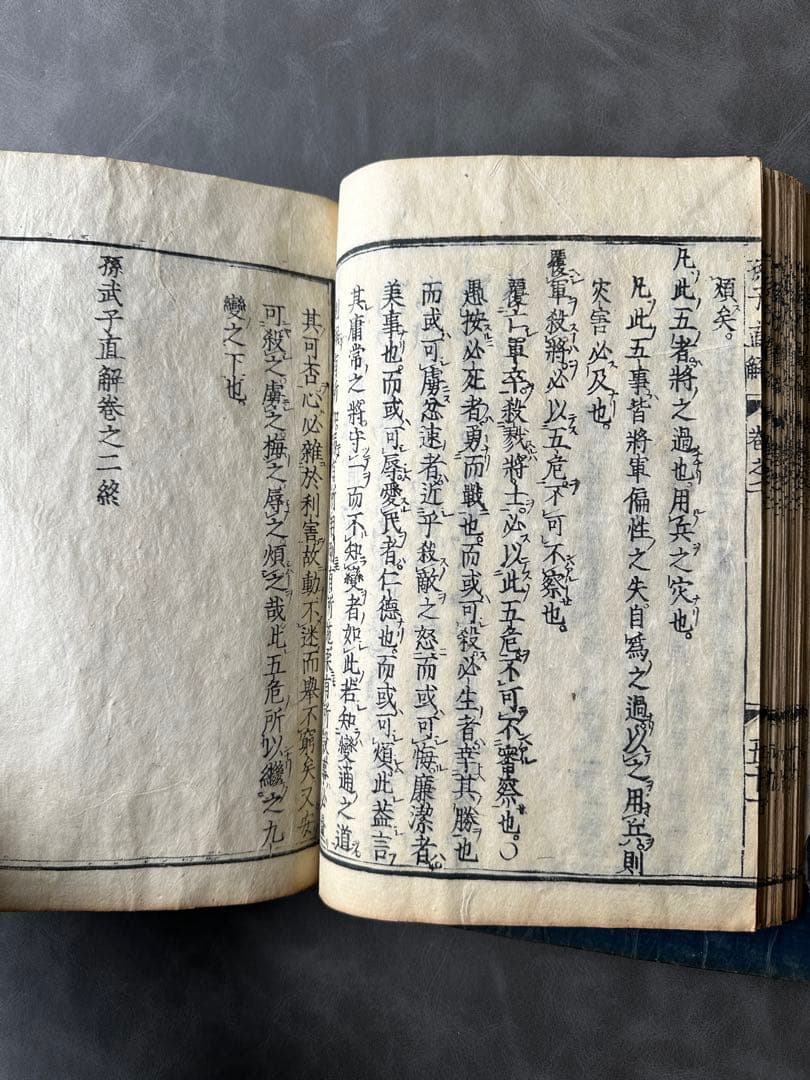 煩矣。
凡此五者將之過也用兵之灾也。
凡此五事皆將軍偏性之失自爲之過以之用兵則
灾害必及也。
覆軍殺將必以五危不可不察也。
覆亡軍卒殺戮將士必以此五危不可不審察也。〇
愚按必死者勇而戰也。而或可殺必生者幸其勝也
而或可虜忿速者近乎殺敵之怒而或可侮廉潔者
美事也。而或可辱愛民者仁德也。而或可煩此益言
其庸常之將守一而不知變者如此若知變通之道
其可否心必雜於利害故動不迷而舉不窮矣又安
可殺之虜之梅之辱之煩之哉此五危所以繼之九
變之下也。
孫武子直解卷之二終
孫子直解 卷之二